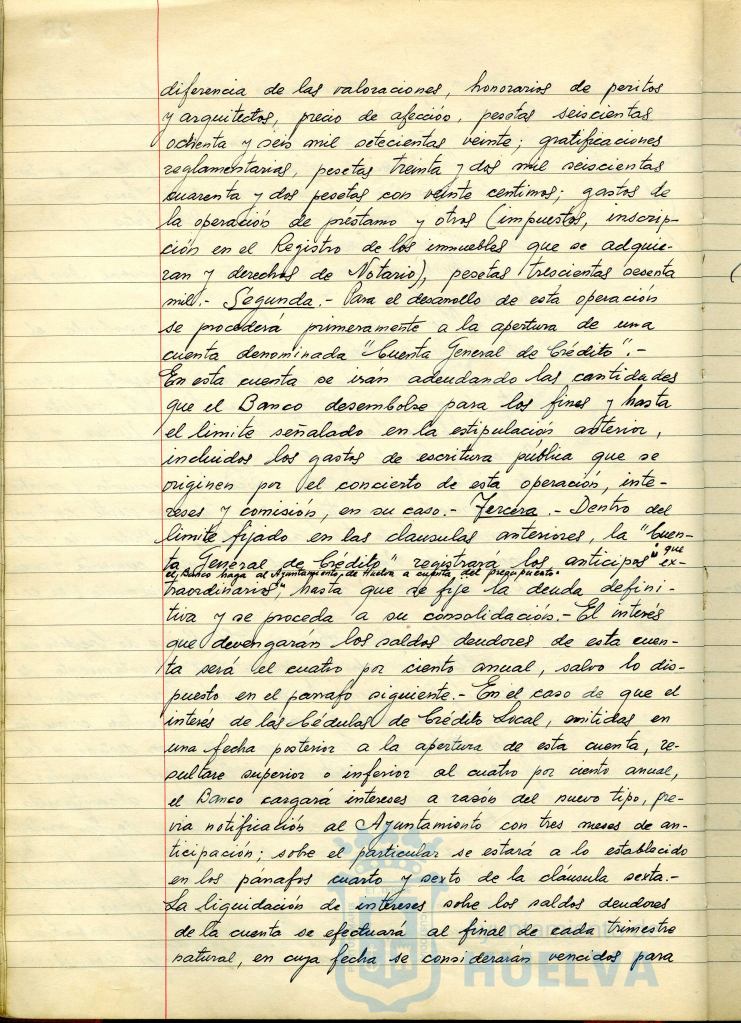 diferencia de las valoraciones, honorarios de peritos
y arquitectos, precio de afección, pesetas seiscientas
ochenta y seis mil setecientas veinte; gratificaciones
reglamentarias, pesetas treinta y dos mil seiscientas
cuarenta y dos pesetas con veinte centimos; gastos de
la operación de préstamo y otros (impuestos, inscrip-
ción en el Registro de los inmuebles que se adquie-
ran y derechos de Notario), pesetas trescientas sesenta
mil.- Segunda.- Para el desarrollo de esta operación
se procederá primeramente a la apertura de una
cuenta denominada "Cuenta General de Crédito".-
En esta cuenta se irán adeudando las cantidades
que el Banco desembolse para los fines y hasta
el limite señalado en la estipulación anterior,
incluidos los gastos de escritura pública que se
originen por el concierto de esta operación, inte-
reses y comisión, en su caso.- Tercera.- Dentro del
limite fijado en las clausulas anteriores, la "Cuen-
ta General de Crédito" registrará los anticipos "que ex-
el Banco haga al Ayuntamiento de Huelva a cuenta del presupuesto
traordinarios", hasta que se fije la deuda defini-
tiva y se proceda a su consolidación.- El interés
que devengarán los saldos deudores de esta cuen-
ta será el cuatro por ciento anual, salvo lo dis-
puesto en el parrafo siguiente.- En el caso de que el
interés de las Cédulas de Crédito Local, emitidas en
una fecha posterior a la apertura de esta cuenta, re-
sultare superior o inferior al cuatro por ciento anual,
el Banco cargará intereses a razón del nuevo tipo, pre-
via notificación al Ayuntamiento con tres meses de an-
ticipación; sobre el particular se estará a lo establecido
en los párrafos cuarto y sexto de la cláusula sexta.-
La liquidación de intereses sobre los saldos deudores
de la cuenta se efectuará al final de cada trimestre
natural, en cuya fecha se considerarán vencidos para
HUELVA